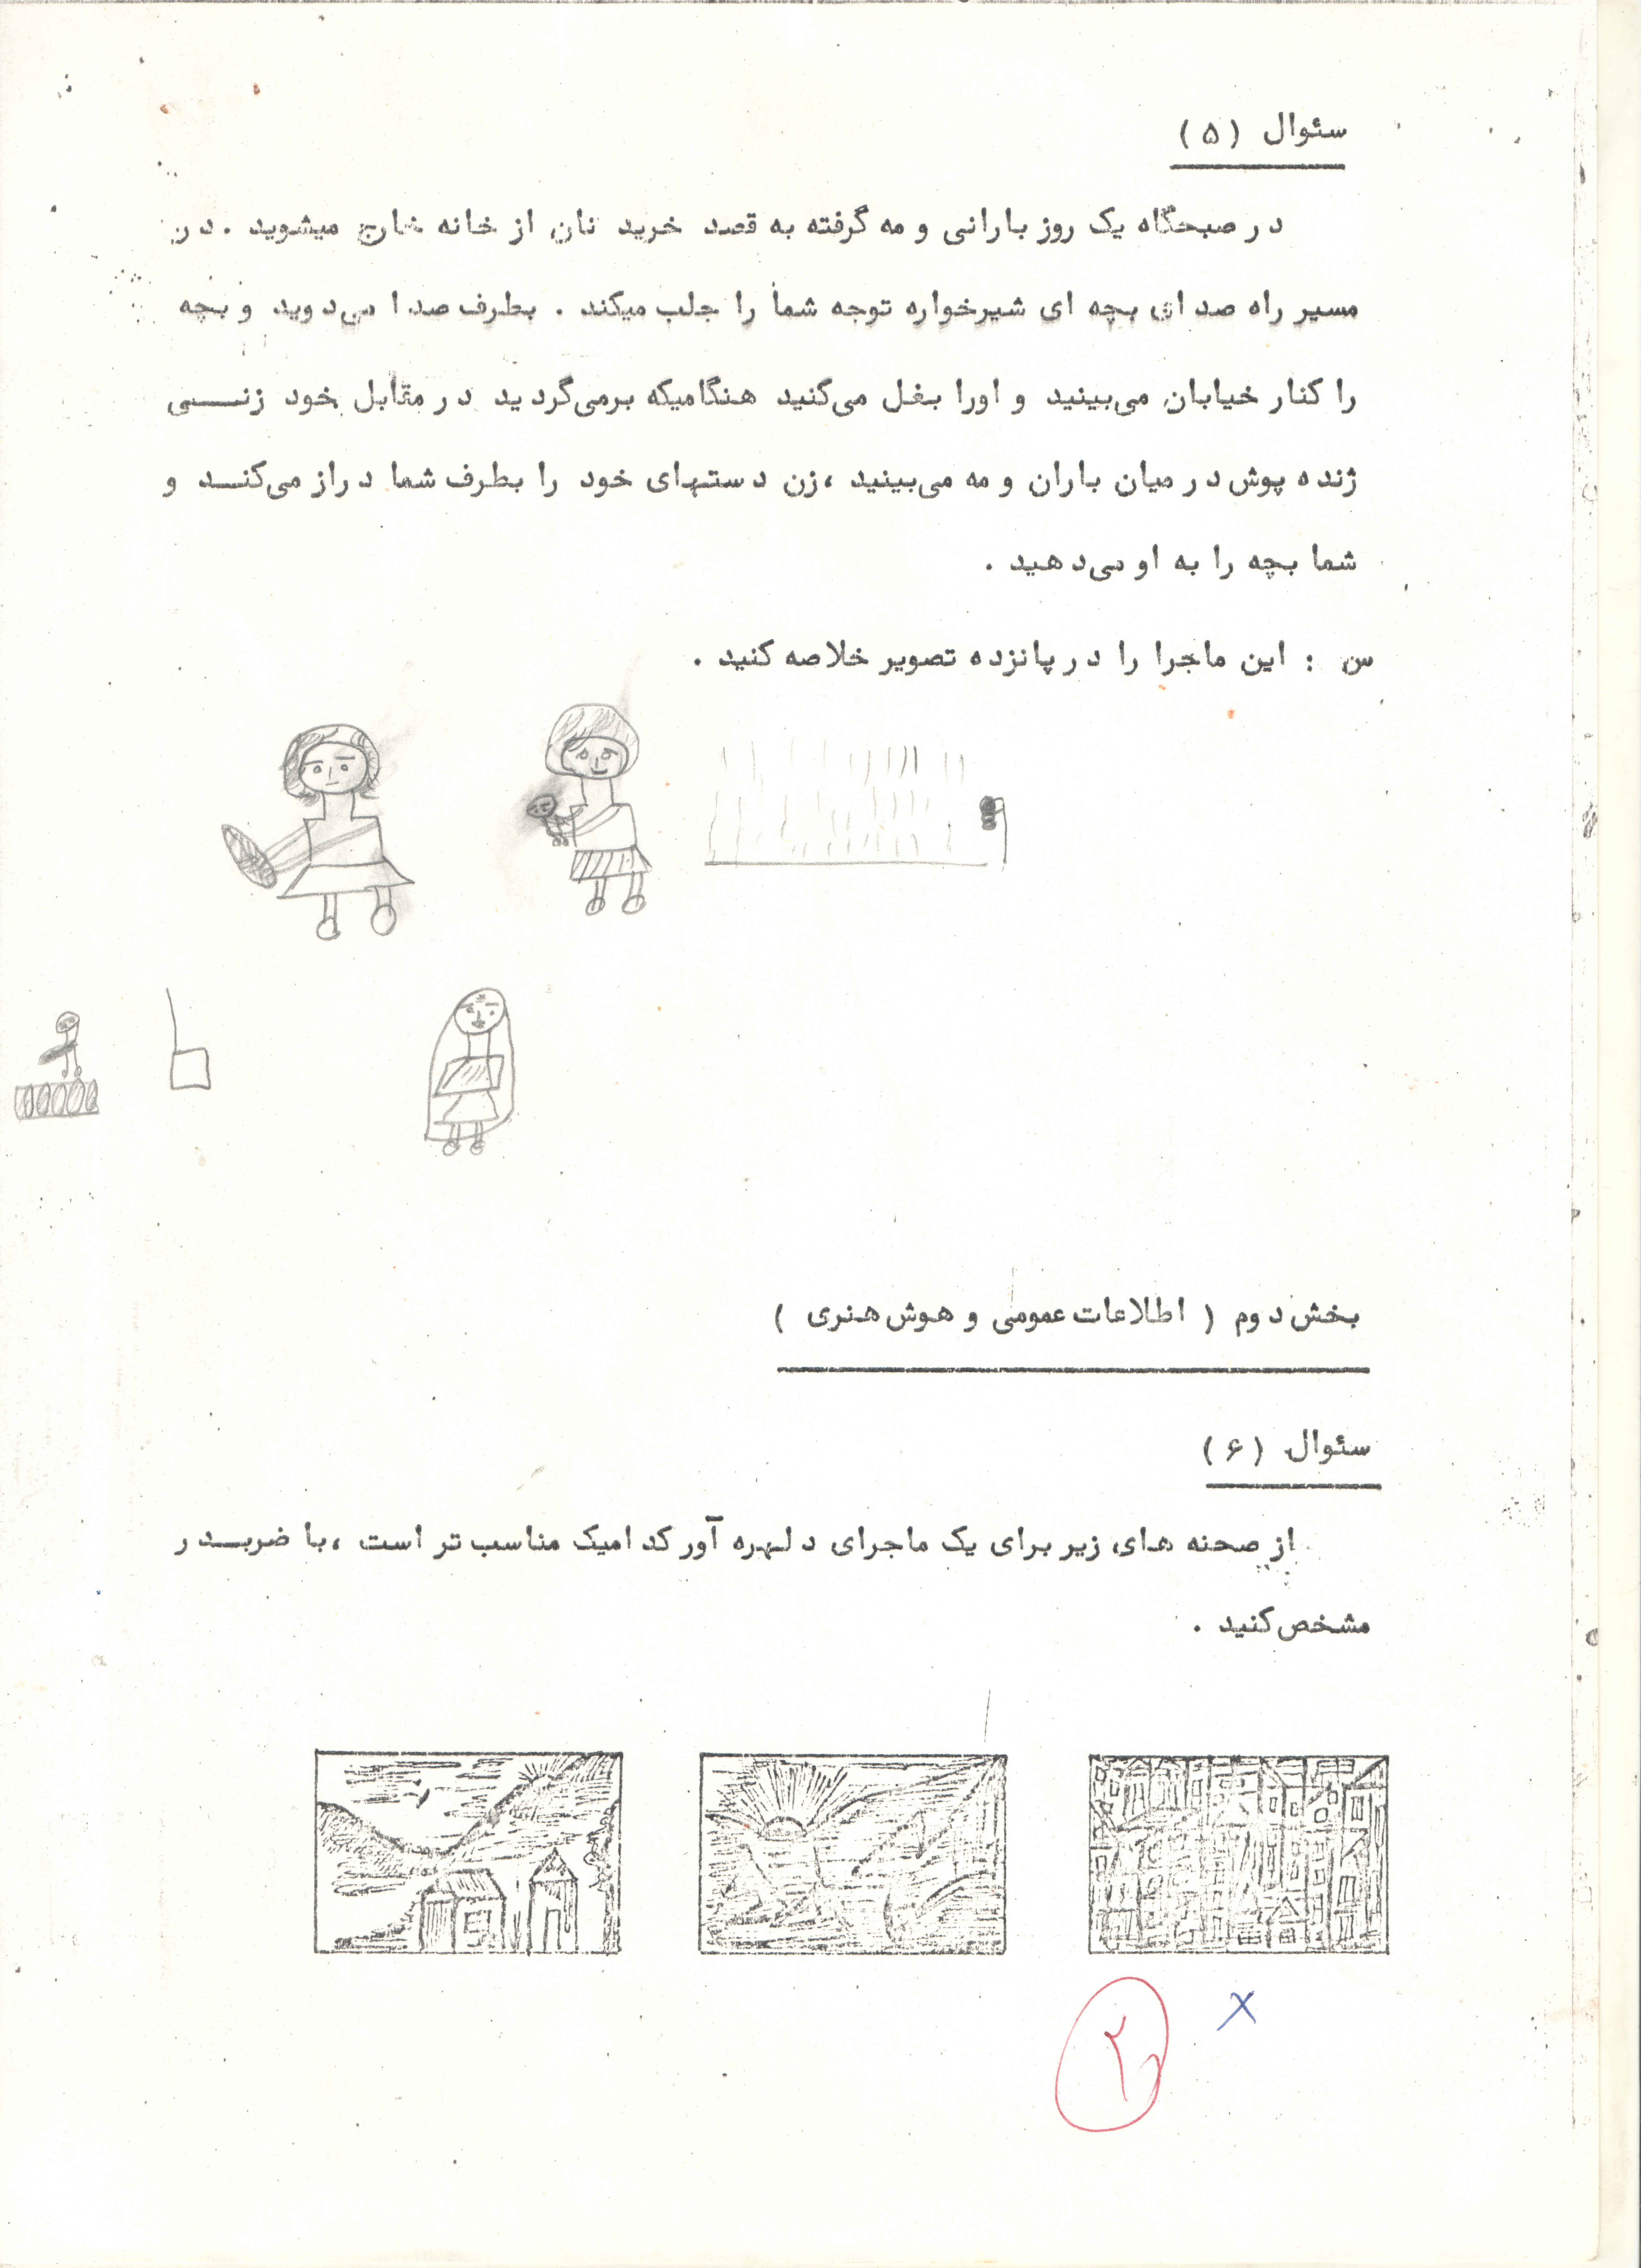 سئوال (۵)
در صبحگاه یک روز بارانی و مه گرفته به قصد خرید نان از خانه خارج میشوید . در
مسیر راه صدای بچه ای شیرخواره توجه شما را جلب میکند . بطرف صدا می‌دوید و بچه
را کنار خیابان می‌بینید و اورا بغل می‌کنید هنگامیکه برمی‌گردید در مقابل خود زنی
ژنده پوش در میان باران و مه می‌بینید ، زن دستهای خود را بطرف شما دراز می‌کند و
شما بچه را به او می‌دهید .
س : این ماجرا را در پانزده تصویر خلاصه کنید .
بخش دوم ( اطلاعات عمومی و هوش هنری )
سئوال (۶)
از صحنه های زیر برای یک ماجرای دلهره آور کدامیک مناسب تر است ، با ضربدر
مشخص کنید .
x
۲